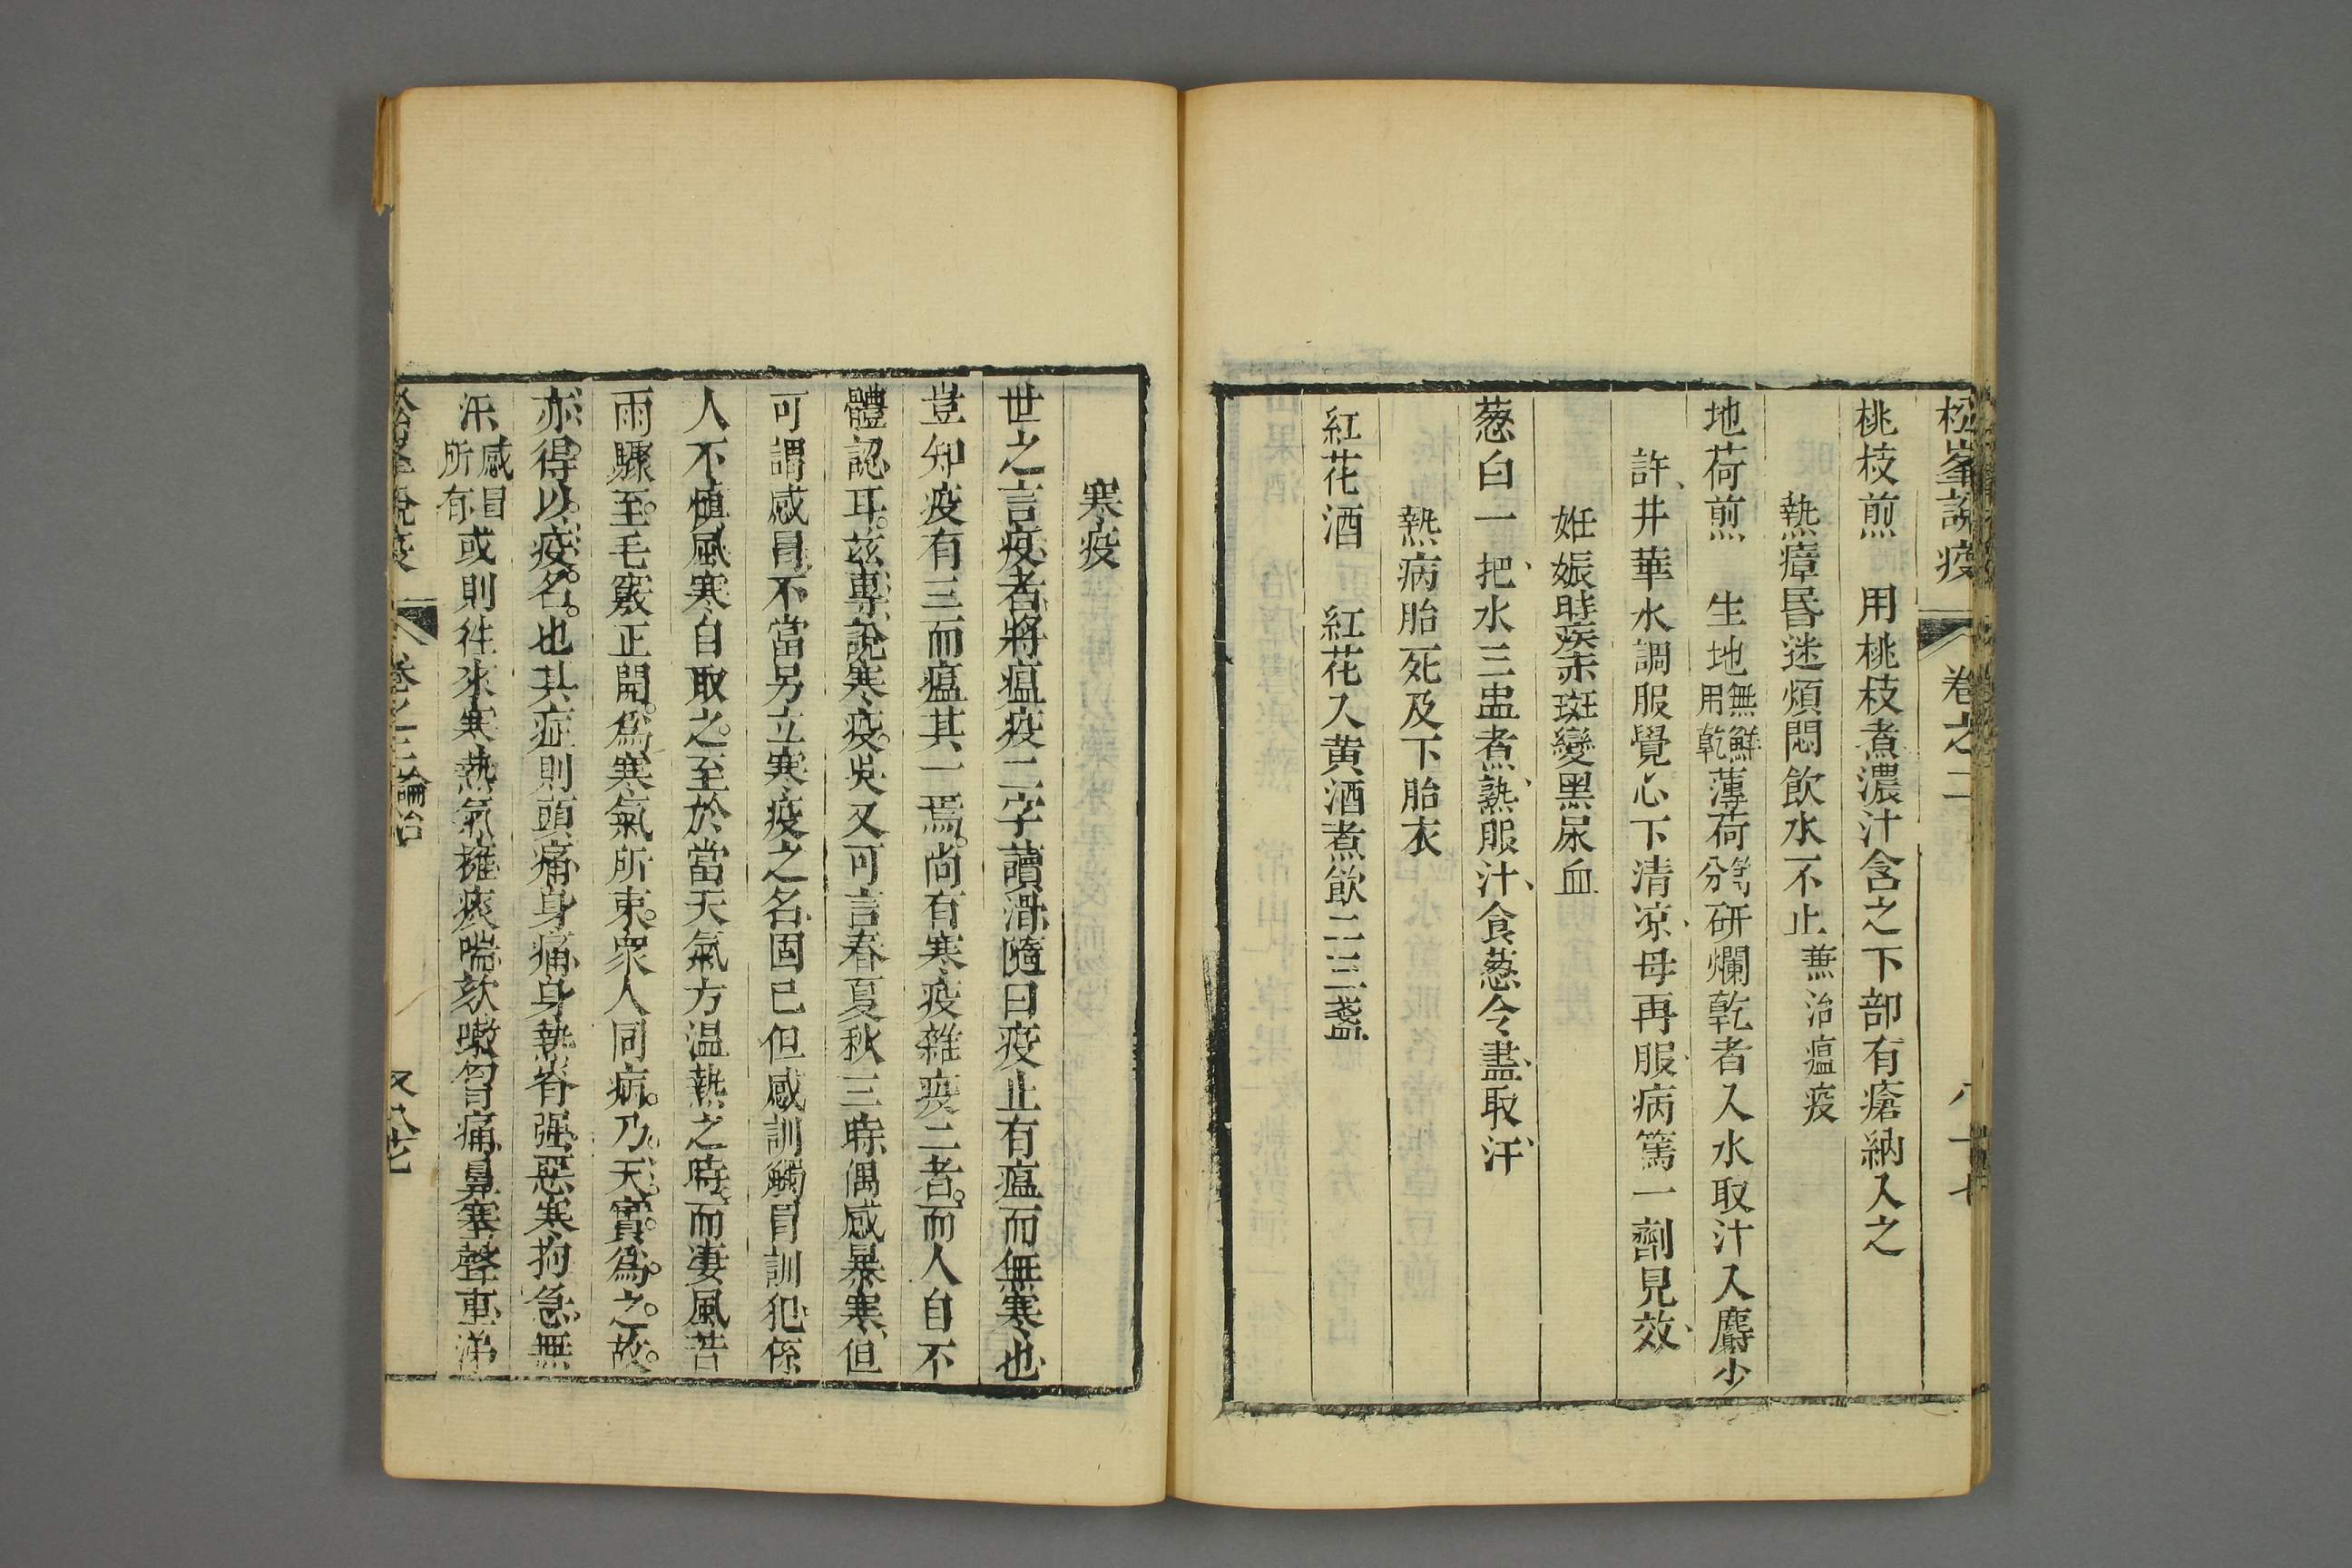 松峯說疫 卷之二 八十七
桃枝煎 用桃枝煮濃汁含之下部有瘡納入之
熱瘴昏迷煩悶飲水不止 兼治瘟疫
地荷煎 生地無鮮用乾薄荷等分研爛乾者入水取汁入麝少
許井華水調服覺心下清凉毋再服病篤一劑見效
姙娠時疾赤斑變黑尿血
葱白一把水三盅煮熟服汁食葱令盡取汗
熱病胎死及下胎衣
紅花酒 紅花入黄酒煮飲二三盞
寒疫
世之言疫者將瘟疫二字讀滑隨曰疫止有瘟而無寒也
豈知疫有三而瘟其一焉尚有寒疫雜疫二者而人自不
體認耳茲專說寒疫吳又可言春夏秋三時偶感暴寒但
可謂感冒不當另立寒疫之名固已但感訓觸冒訓犯係
人不慎風寒自取之至於當天氣方温熱之時而凄風苦
雨驟至毛竅正開為寒氣所束衆人同病乃天實為之故
亦得以疫名也其症則頭痛身痛身熱脊强惡寒拘急無
汗感冒所有或則往來寒熱氣擁痰喘欬嗽胷痛鼻塞聲重涕
松峯說疫 卷之二論治